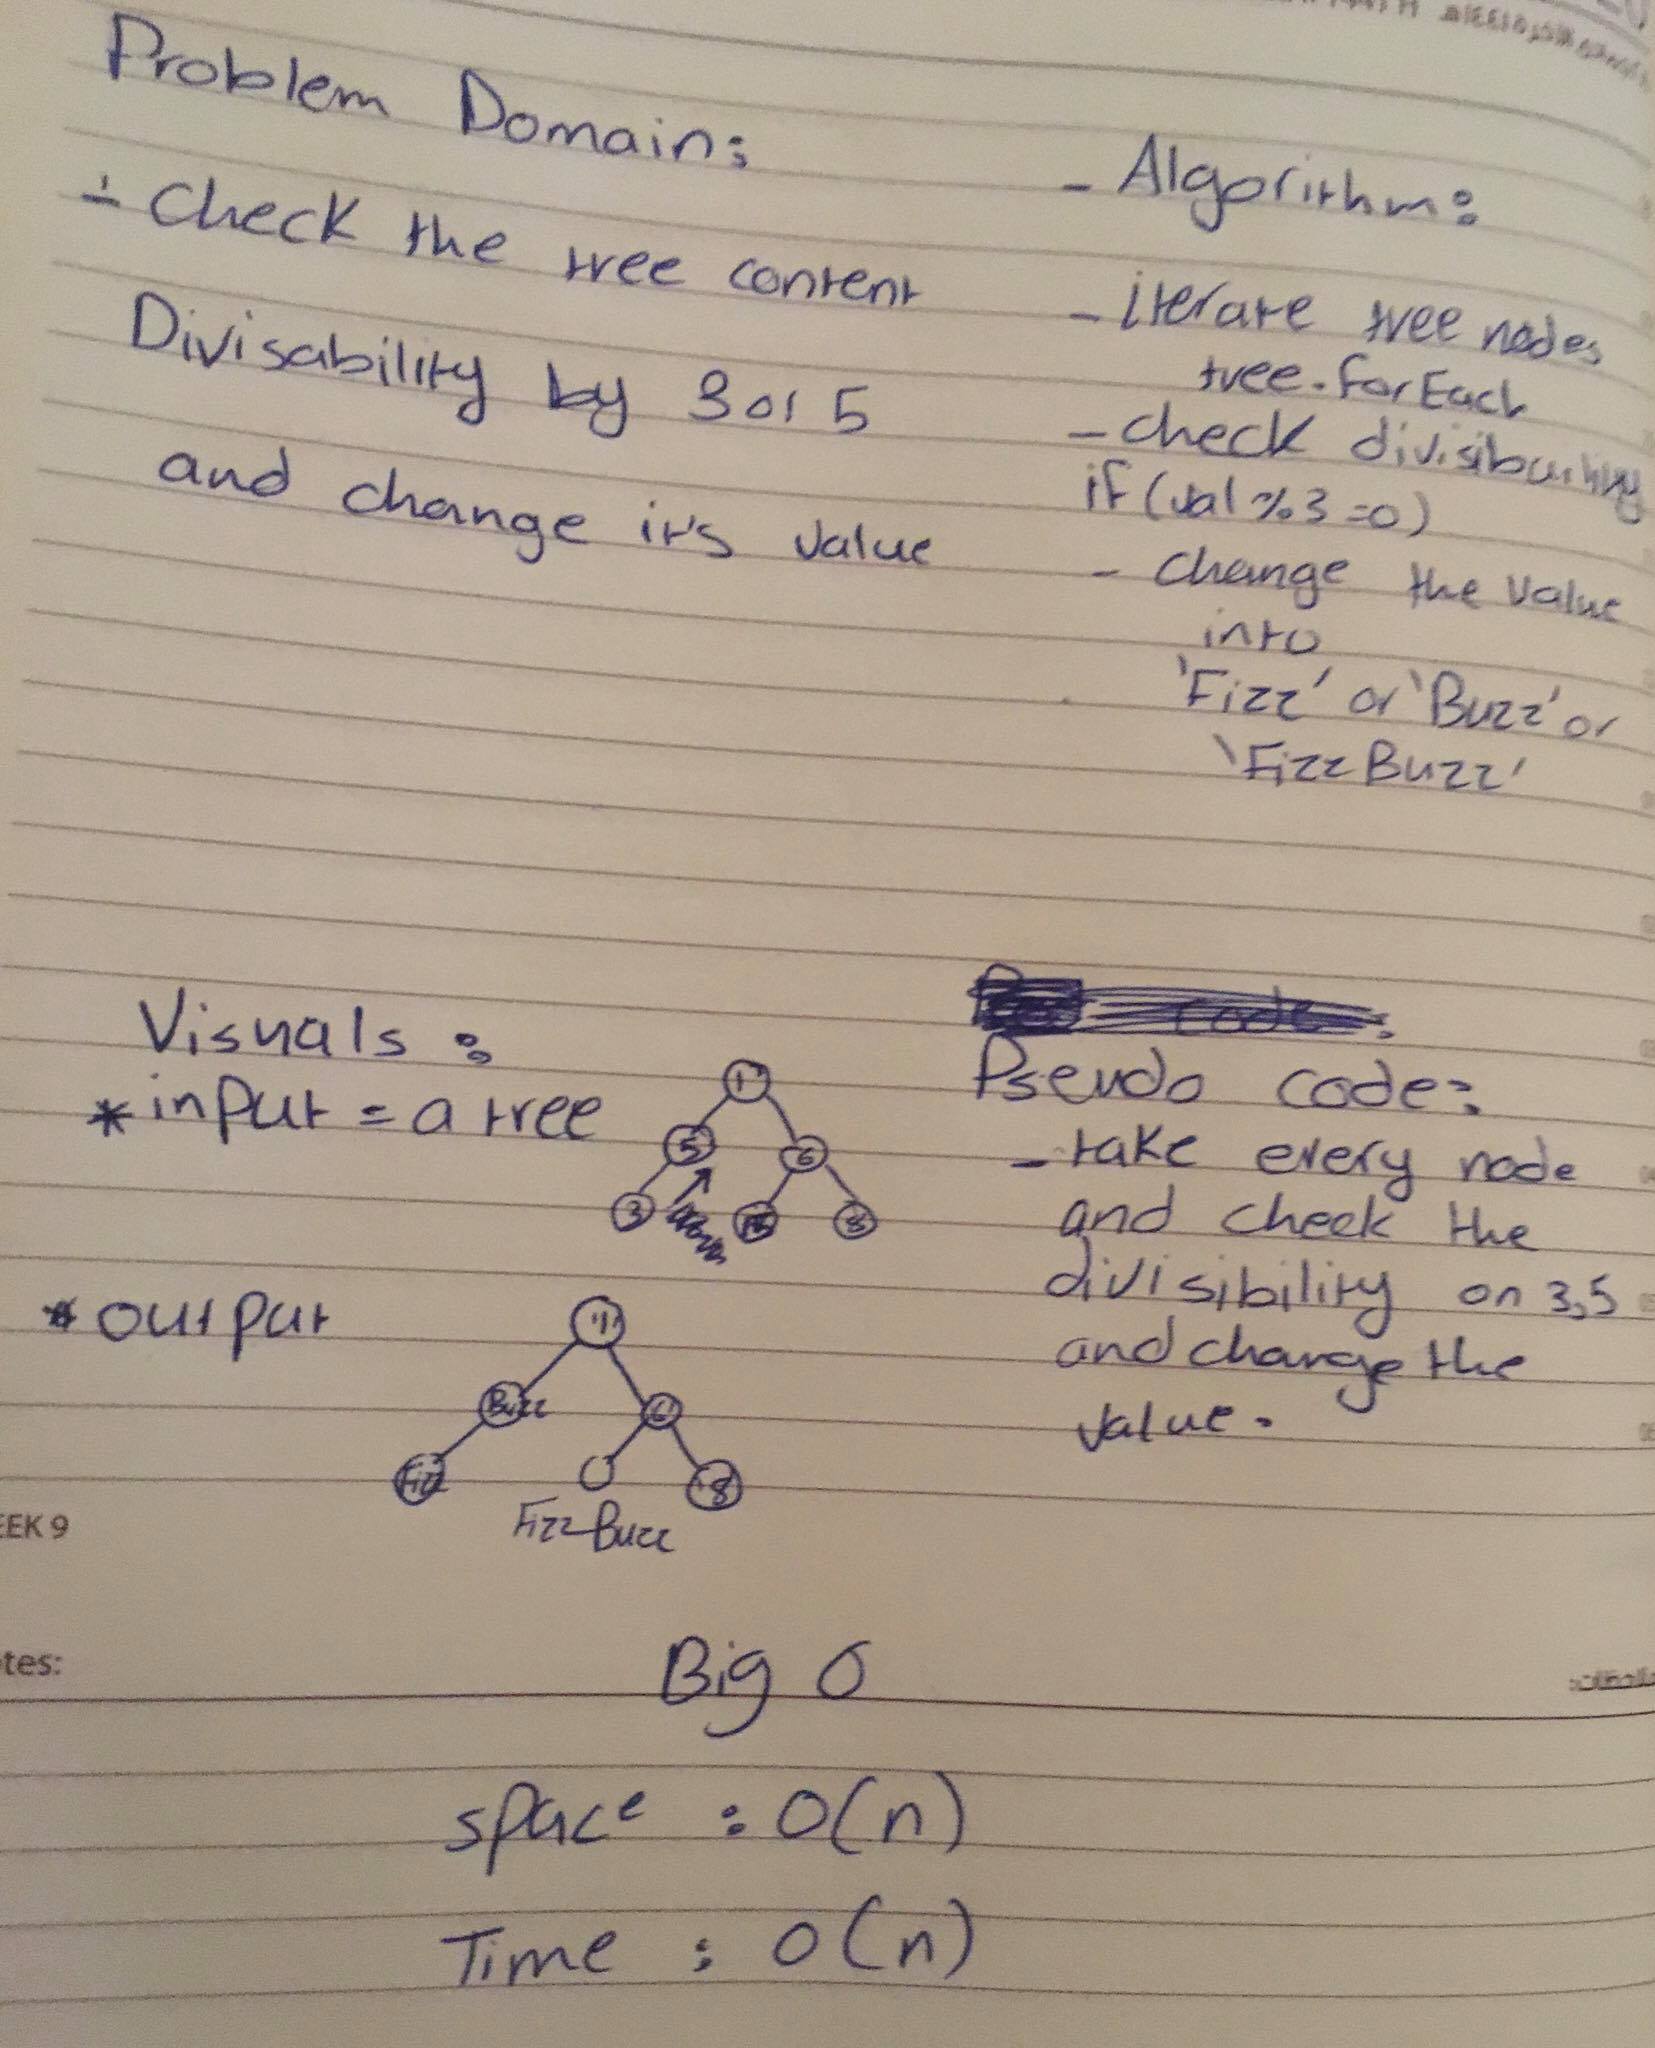 Problem Domain:
- Check the tree content
Divisability by 3 or 5
and change it's value
- Algorithm:
- iterate tree nodes
tree.forEach
- check divisibility
if (val % 3 = 0)
- Change the value
into
'Fizz' or 'Buzz' or
'FizzBuzz'
Visuals:
* input = a tree
1
5 6
3 15 8
* output
'1'
Buzz '6'
Fizz '8'
FizzBuzz
code:
Pseudo code:
- take every node
and check the
divisibility on 3,5
and change the
value.
EEK 9
tes:
Big O
space : O(n)
Time : O(n)